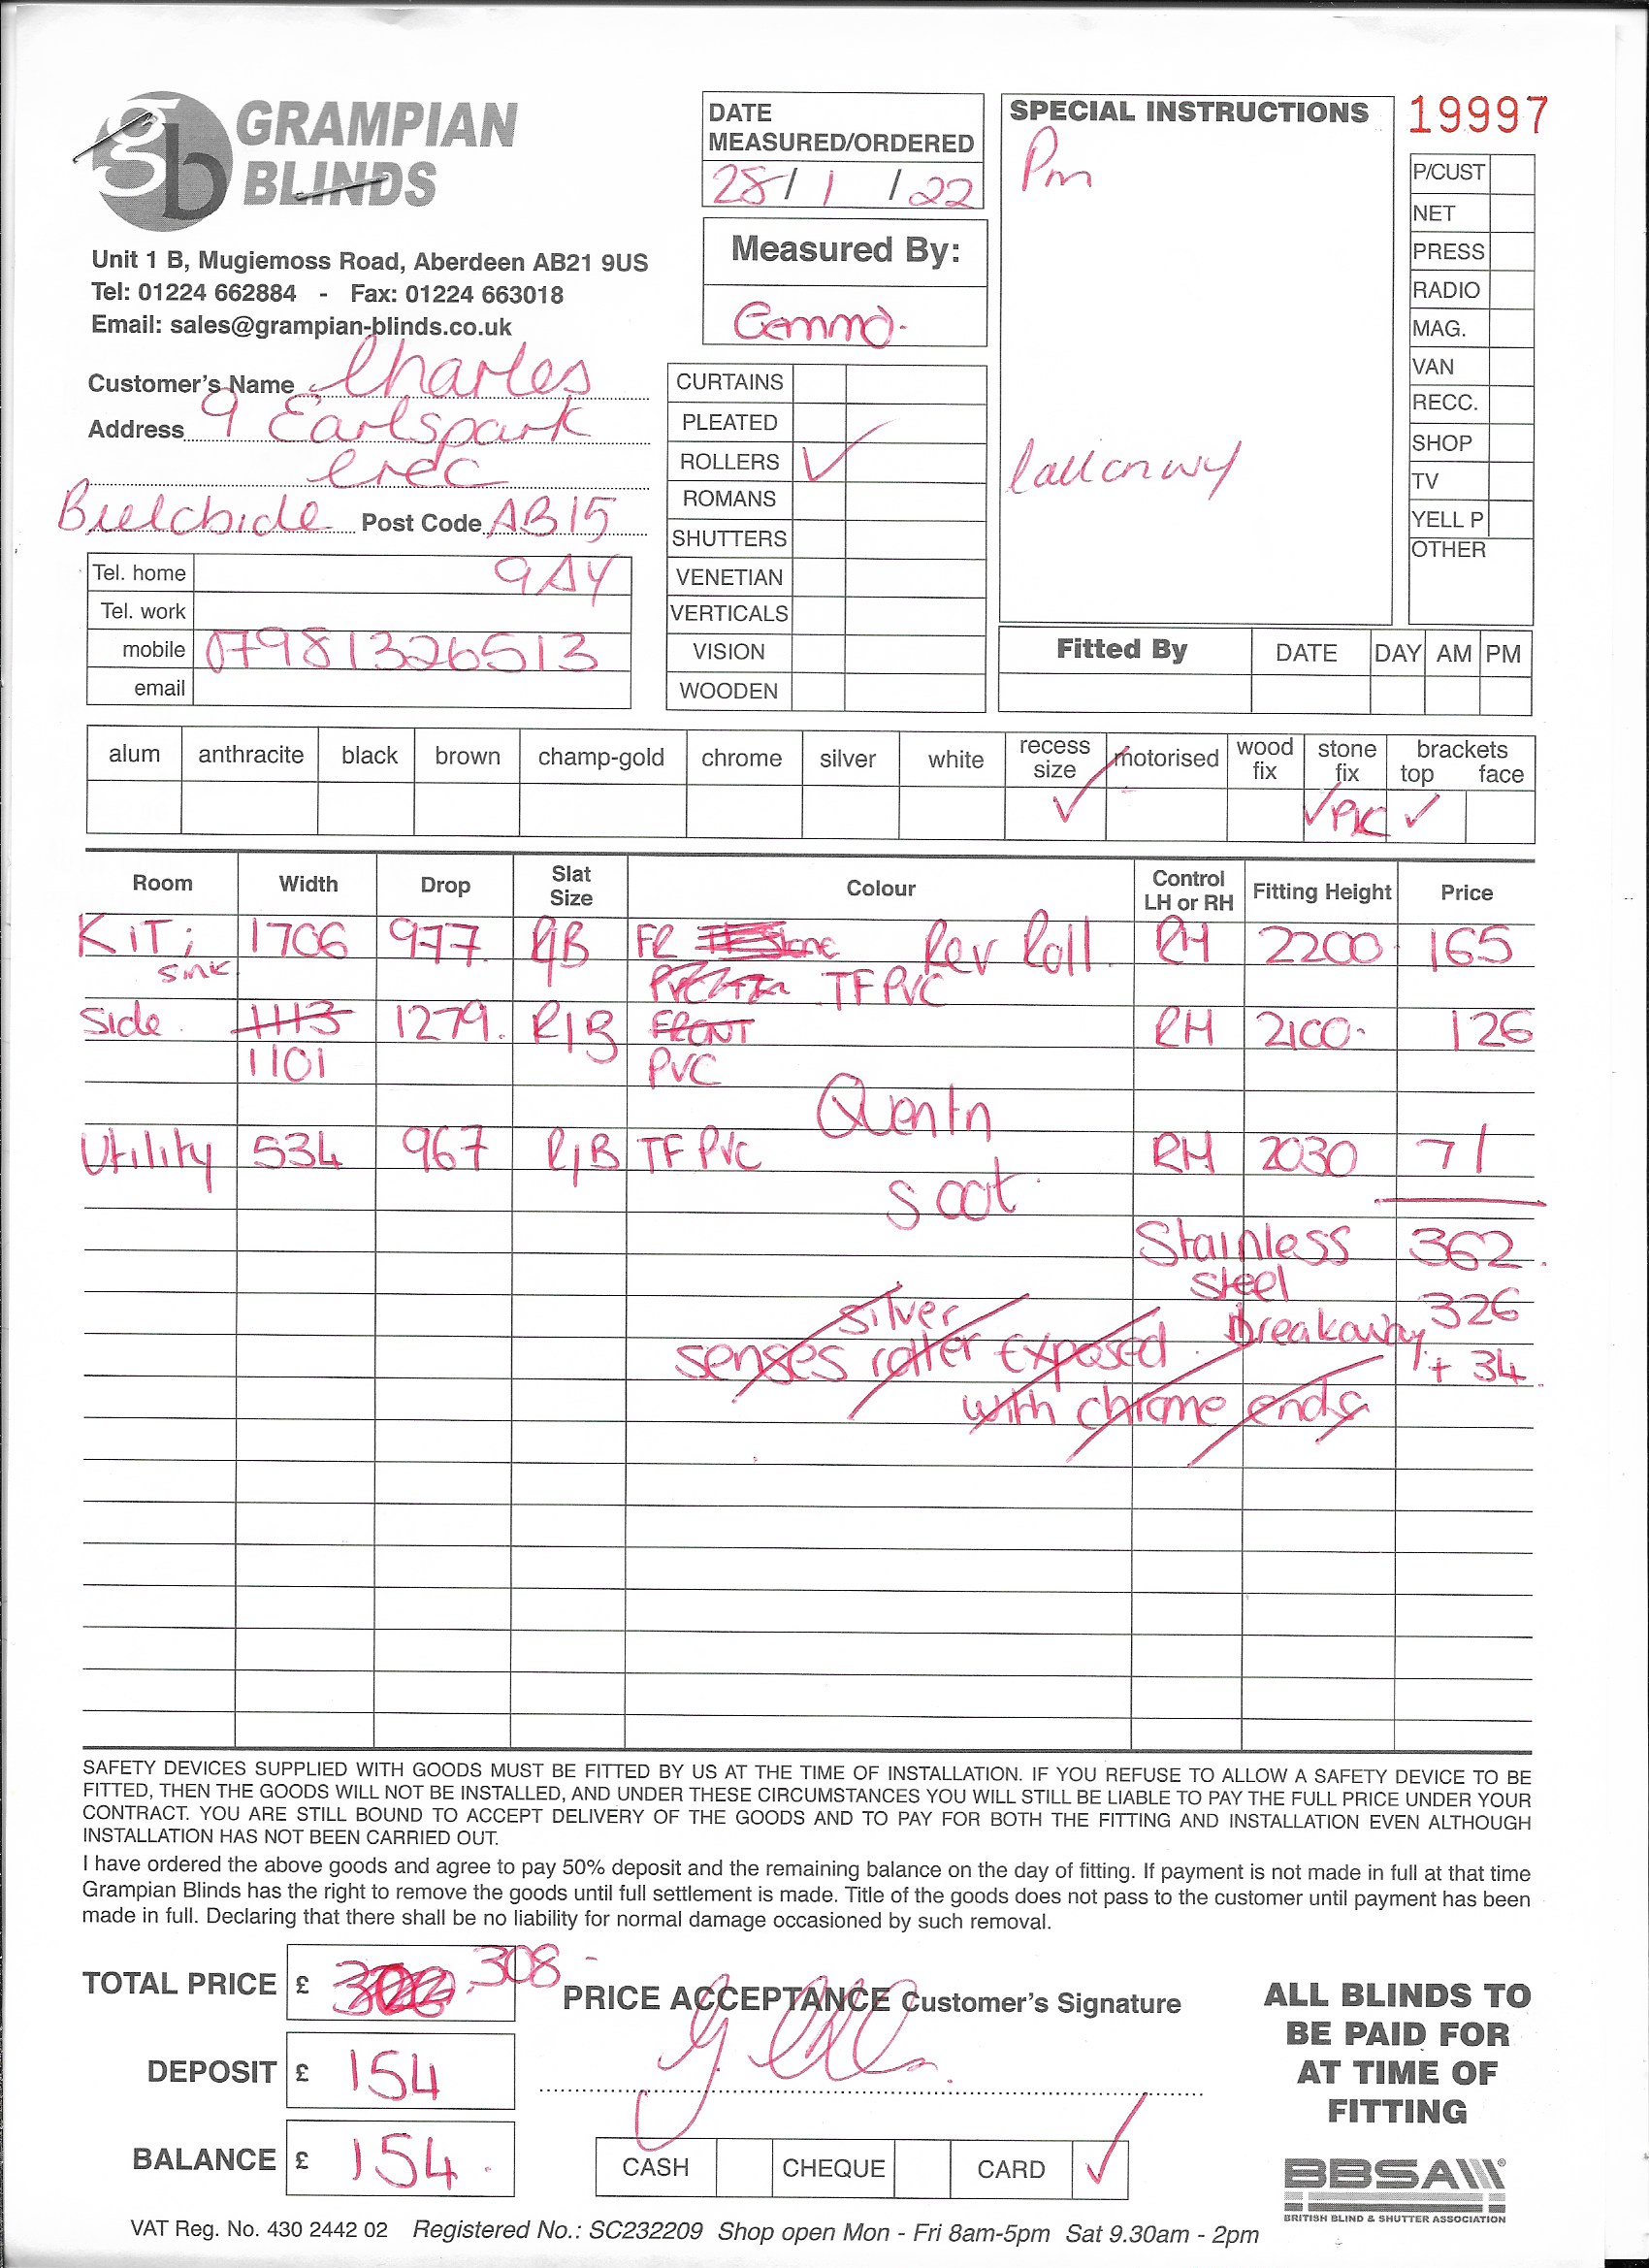 GRAMPIAN
BLINDS
Unit 1 B, Mugiemoss Road, Aberdeen AB21 9US
Tel: 01224 662884 - Fax: 01224 663018
Email: sales@grampian-blinds.co.uk
Customer's Name Charles
Address 9 Earlspark
Crec
Post Code AB15
9AY
Tel. home
Tel. work
mobile 07981326513
email
DATE
MEASURED/ORDERED
28/1/22
Measured By:
Gemma.
CURTAINS
PLEATED
ROLLERS ✓
ROMANS
SHUTTERS
VENETIAN
VERTICALS
VISION
WOODEN
SPECIAL INSTRUCTIONS
Pm
19997
P/CUST
NET
PRESS
RADIO
MAG.
VAN
RECC.
SHOP
TV
YELL P
OTHER
Fitted By DATE DAY AM PM
alum anthracite black brown champ-gold chrome silver white recess size motorised wood fix stone fix brackets top face
✓ ✓ ✓
Room Width Drop Slat Size Colour Control LH or RH Fitting Height Price
KIT; 1706 977 R/B FR Rev Roll. RH 2200 165
sink TF PVC
Side 1113 1279. R/B FRONT RH 2100. 126
1101 PVC
Quentn
Utility 534 967 R/B TF PVC RH 2030 71
Scot
Stainless 362
steel
silver Breakaway 326
senses roller exposed. + 34
with chrome ends
SAFETY DEVICES SUPPLIED WITH GOODS MUST BE FITTED BY US AT THE TIME OF INSTALLATION. IF YOU REFUSE TO ALLOW A SAFETY DEVICE TO BE
FITTED, THEN THE GOODS WILL NOT BE INSTALLED, AND UNDER THESE CIRCUMSTANCES YOU WILL STILL BE LIABLE TO PAY THE FULL PRICE UNDER YOUR
CONTRACT. YOU ARE STILL BOUND TO ACCEPT DELIVERY OF THE GOODS AND TO PAY FOR BOTH THE FITTING AND INSTALLATION EVEN ALTHOUGH
INSTALLATION HAS NOT BEEN CARRIED OUT.
I have ordered the above goods and agree to pay 50% deposit and the remaining balance on the day of fitting. If payment is not made in full at that time
Grampian Blinds has the right to remove the goods until full settlement is made. Title of the goods does not pass to the customer until payment has been
made in full. Declaring that there shall be no liability for normal damage occasioned by such removal.
TOTAL PRICE £ 308
DEPOSIT £ 154
BALANCE £ 154.
PRICE ACCEPTANCE Customer's Signature
CASH CHEQUE CARD ✓
ALL BLINDS TO
BE PAID FOR
AT TIME OF
FITTING
BBSA
BRITISH BLIND & SHUTTER ASSOCIATION
VAT Reg. No. 430 2442 02 Registered No.: SC232209 Shop open Mon - Fri 8am-5pm Sat 9.30am - 2pm